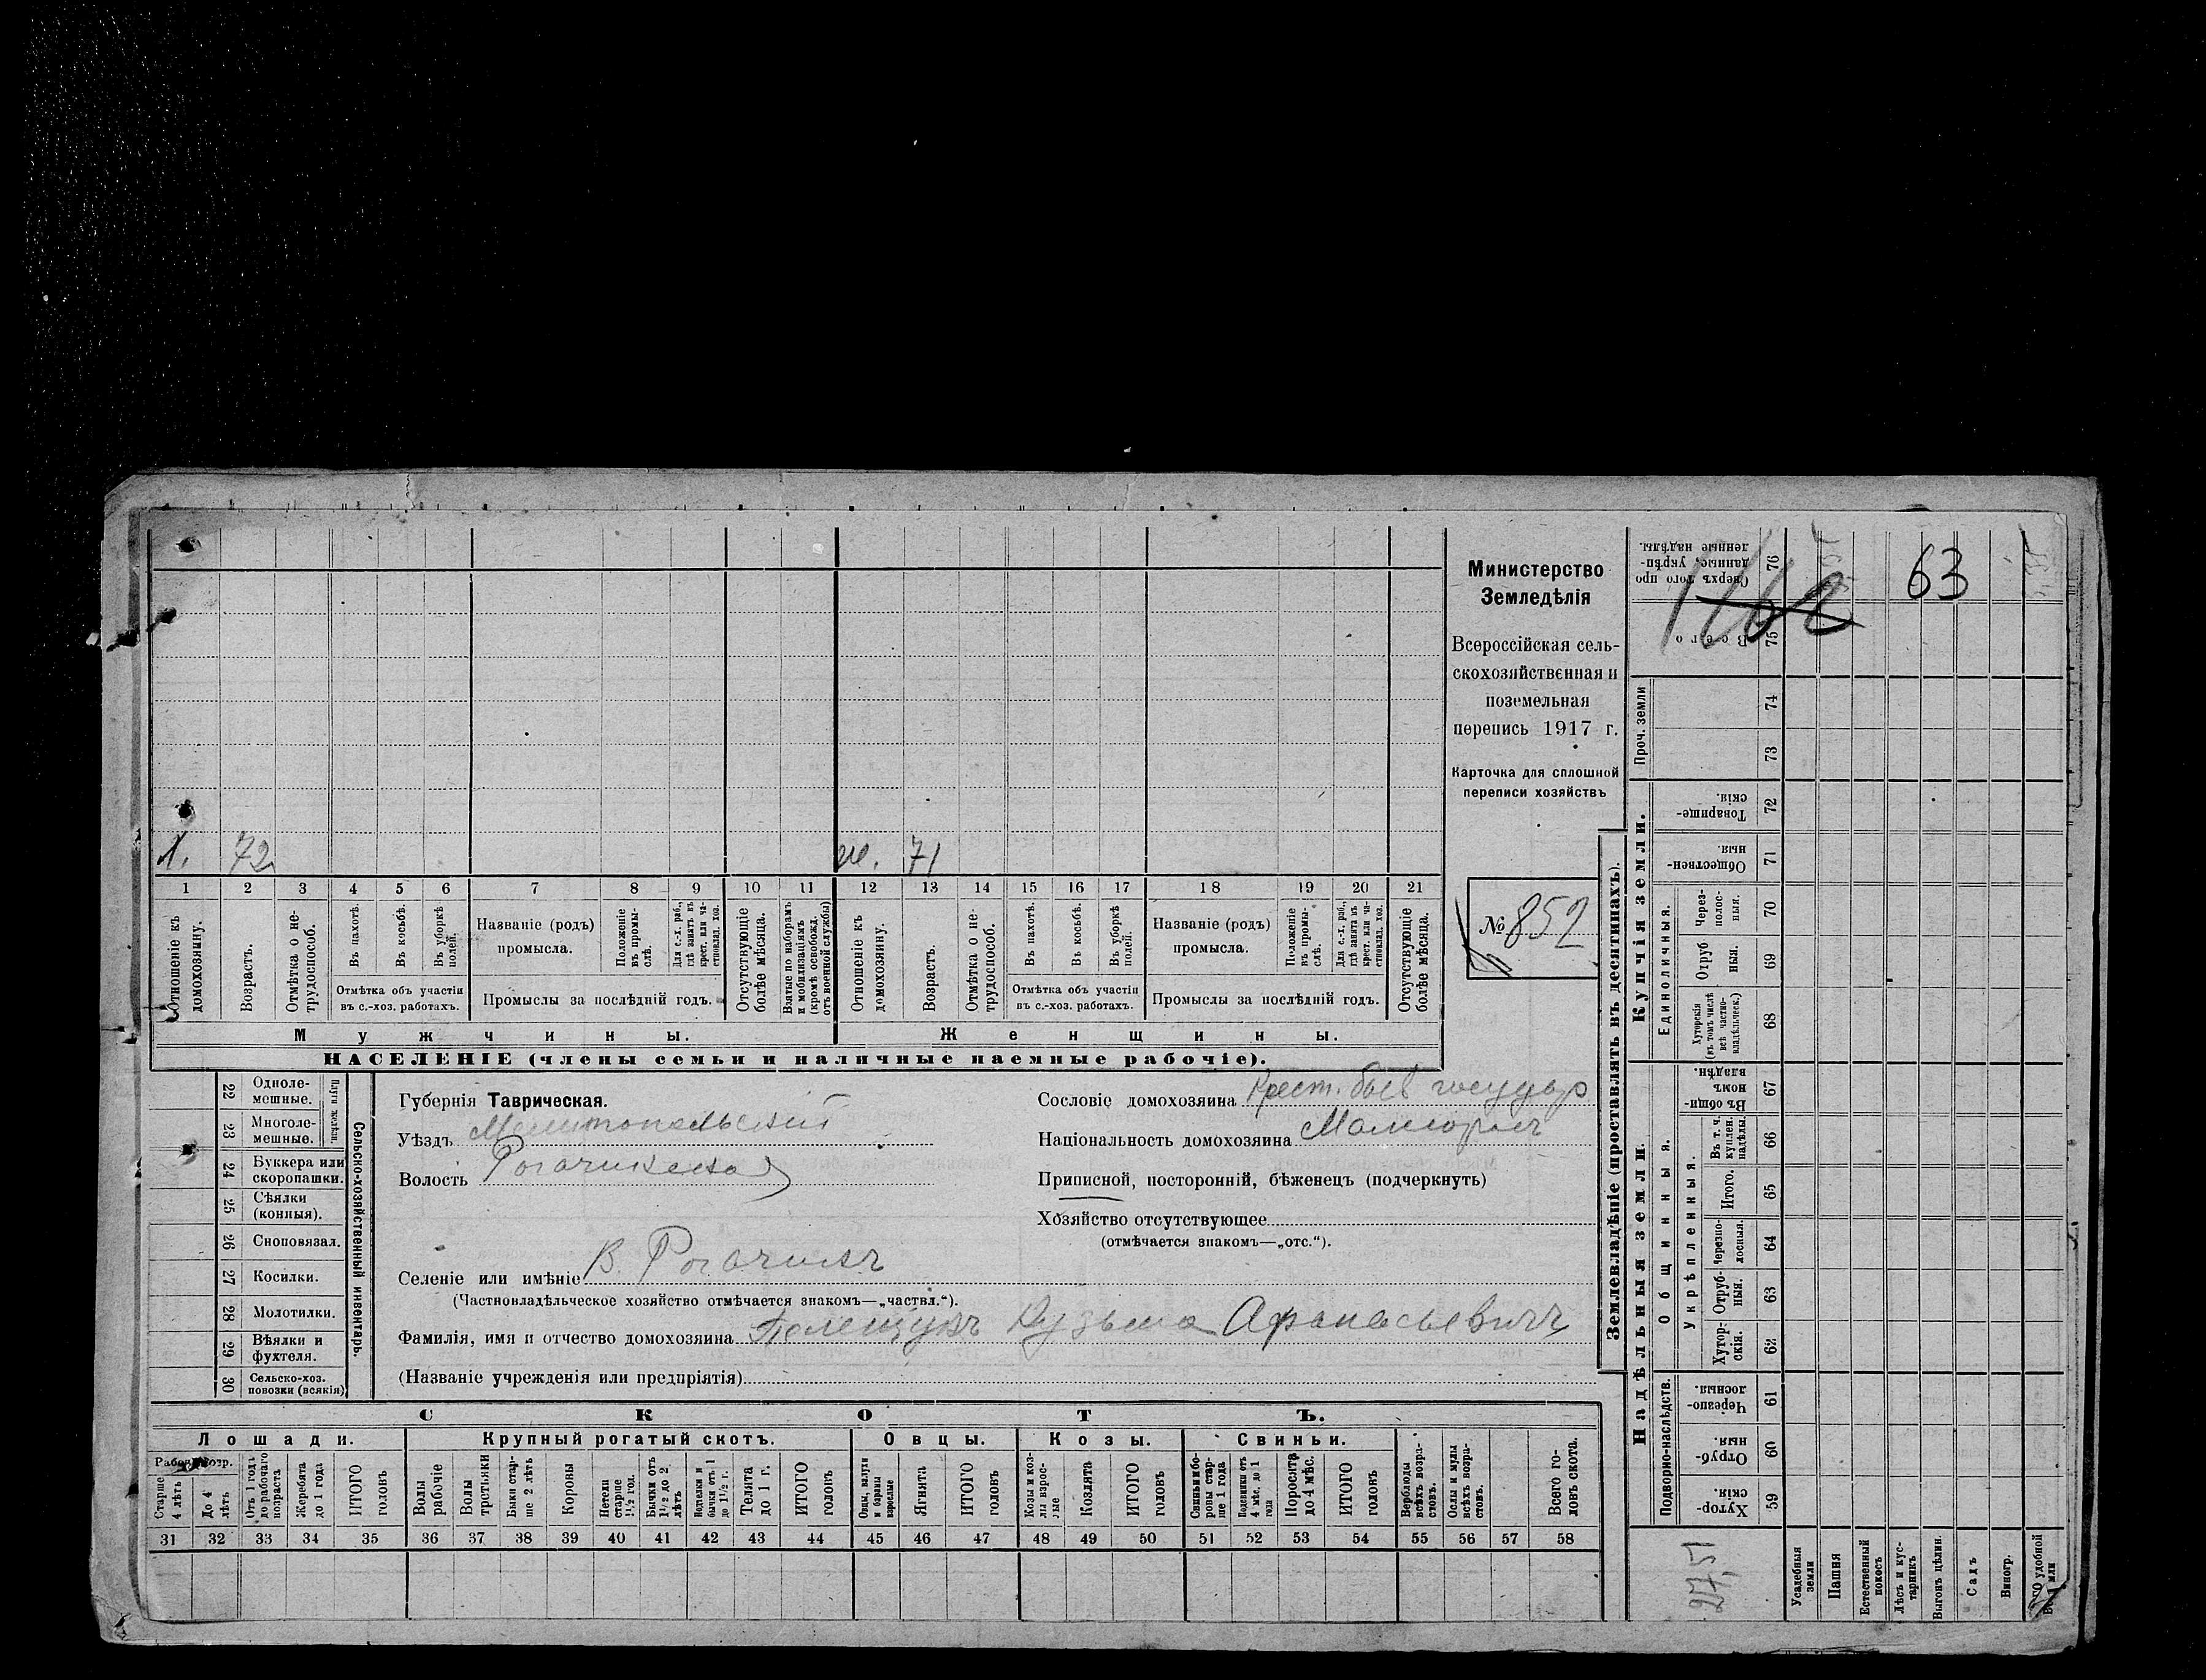 1. 72 ж. 71
1 2 3 4 5 6 7 8 9 10 11 12 13 14 15 16 17 18 19 20 21
Отношеніе къ домохозяину.
Возрастъ.
Отмѣтка о не-трудоспособ.
Въ пахотѣ.
Въ косьбѣ.
Въ уборкѣ полей.
Отмѣтка объ участіи
въ с.-хоз. работахъ.
Названіе (родъ)
промысла.
Положеніе въ промы-слѣ.
Для с.-х. раб., гдѣ занятъ въ крест. или ча-стновлад. хоз.
Промыслы за послѣдній годъ.
Отсутствующіе болѣе мѣсяца.
Взятые по наборамъ и мобилизаціямъ (кромѣ освобожд. отъ военной службы)
Отношеніе къ домохозяину.
Возрастъ.
Отмѣтка о не-трудоспособ.
Въ пахотѣ.
Въ косьбѣ.
Въ уборкѣ полей.
Отмѣтка объ участіи
въ с.-хоз. работахъ.
Названіе (родъ)
промысла.
Положеніе въ промы-слѣ.
Для с.-х. раб., гдѣ занятъ въ крест. или ча-стновлад. хоз.
Промыслы за послѣдній годъ.
Отсутствующіе болѣе мѣсяца.
Мужчины. Женщины.
НАСЕЛЕНІЕ (члены семьи и наличные наемные рабочіе).
Министерство
Земледѣлія
Всероссійская сель-
скохозяйственная и
поземельная
перепись 1917 г.
Карточка для сплошной
переписи хозяйствъ
№ 852
22 Одноле-мешные.
23 Многоле-мешные.
Плуги желѣзн.
24 Буккера или скоропашки.
25 Сѣялки (конныя).
26 Сноповязал.
27 Косилки.
28 Молотилки.
29 Вѣялки и фухтеля.
30 Сельско-хоз. повозки (всякія)
Сельско-хозяйственный инвентарь.
Губернія Таврическая.
Уѣздъ Мелитопольскій
Волость Рогачикская
Селеніе или имѣніе В. Рогачикъ
(Частновладѣльческое хозяйство отмѣчается знакомъ—„частвл.“).
Фамилія, имя и отчество домохозяина Полещукъ Кузьма Афанасьевичъ
(Названіе учрежденія или предпріятія)
Сословіе домохозяина Крест. быв государ
Національность домохозяина Малоросъ
Приписной, посторонній, бѣженецъ (подчеркнуть)
Хозяйство отсутствующее
(отмѣчается знакомъ—„отс.“).
СКОТЪ.
Лошади. Крупный рогатый скотъ. Овцы. Козы. Свиньи.
Старше 4 лѣтъ
До 4 лѣтъ
Отъ 1 года до рабочаго возраста
Жеребята до 1 года
ИТОГО головъ
Волы рабочіе
Волы третьяки
Быки стар-ше 2 лѣтъ
Коровы
Нетели старше 1½ год.
Бычки отъ 1½ до 2 лѣтъ
Подтелки и бычки отъ 1 до 1½ г.
Телята до 1 г.
ИТОГО головъ
Овцы, валухи и бараны взрослые
Ягнята
ИТОГО головъ
Козы и коз-лы взрос-лые
Козлята
ИТОГО головъ
Свиньи и бо-ровы стар-ше 1 года
Подсвинки отъ 4 мѣс. до 1 года
Поросята до 4 мѣс.
ИТОГО головъ
Верблюды всѣхъ возра-стовъ.
Ослы и мулы всѣхъ возра-стовъ.
Всего го-ловъ скота.
31 32 33 34 35 36 37 38 39 40 41 42 43 44 45 46 47 48 49 50 51 52 53 54 55 56 57 58
Землевладѣніе (проставлять въ десятинахъ).
Купчія земли.
Надѣльныя земли.
63
Сверхъ того про данные, укрѣп-ленные надѣлы. 76
Всего 75
Проч. земли
74
73
Товарище-скія. 72
Обществен-ныя 71
Единоличныя.
Через-полос-ныя. 70
Отруб ныя. 69
Хуторскія (въ томъ числѣ всѣ частно-владѣльческ.) 68
Общинныя.
Въ общи-номъ владѣн. 67
Укрѣпленныя.
Въ т. ч. куплен. надѣлы. 66
Итого. 65
Черезпо-лосныя. 64
Отруб-ныя. 63
Хутор-скія. 62
Подворно-наслѣдств.
Черезпо-лосныя. 61
Отруб-ныя. 60
Хутор-скія. 59
27,51
Усадебныя земли
Пашня
Естественный покосъ
Лѣсъ и кус-тарникъ
Выгонъ цѣлин.
Садъ
Виногр.